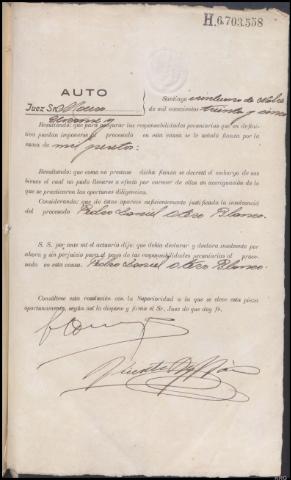 H.6.703.558
AUTO
Santiago veintiuno de octubre
Juez Sr.
de mil novecientos treinta y cinco
Resultando: que para asegurar las responsabilidades pecuniarias que en defini-
tiva puedan imponerse al procesado en esta causa se le señaló fianza por la
suma de mil pesetas:
Resultando: que como no prestase dicha fianza se decretó el embargo de sus
bienes el cual no pudo llevarse a efecto por carecer de ellos en averiguación de lo
que se practicaron las oportunas diligencias.
Considerando: que de éstas aparece suficientemente justificada la insolvencia
del procesado Pedro Daniel Otero Blanco.
S. S. por ante mí el actuario dijo: que debía declarar y declara insolvente por
ahora y sin perjuicio para el pago de las responsabilidades pecuniarias al proce-
sado en esta causa Pedro Daniel Otero Blanco.
Consúltese esta resolución con la Superioridad a la que se eleve esta pieza
oportunamente, según así lo dispone y firma el Sr. Juez de que doy fé.
Vicente